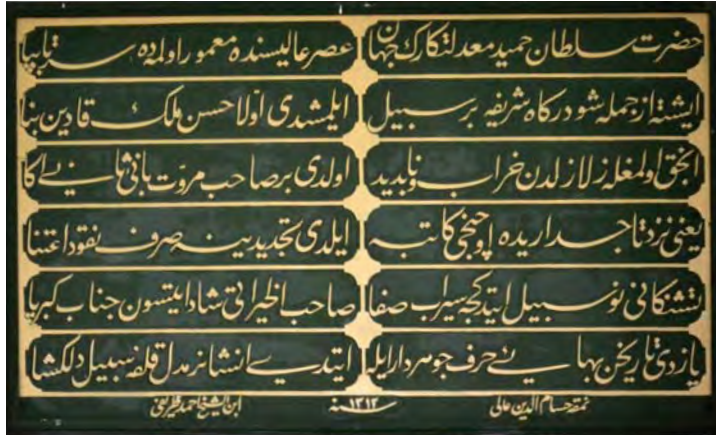 حضرت سلطان حمید معدلتکارك جهان عصر عالیسنده معمور اولمده سرتابپا
ایشته از جمله شو درکاه شریفه بر سبیل ایلمشدی اوّلا حسن ملك قادین بنا
آنجق اولمغله زلازلدن خراب و نابدید اولدی بر صاحب مروّت بانئ ثانیسی اکا
یعنی نزد تاجداریده اوچنجی کاتبه ایلدی تجدیدینه صرف نقود اعتنا
تشنکانی نو سبیل ایتدکجه سیراب صفا صاحب الخیراتی شاد ایتسون جناب کبریا
یازدی تاریخن بهایی حرف جوهردار ایله ایتدی انشا نرمدل قلفه سبیل دلکشا
نمقه حسام الدین عالی سنه ١٣١٢ ابن الشیخ احمد